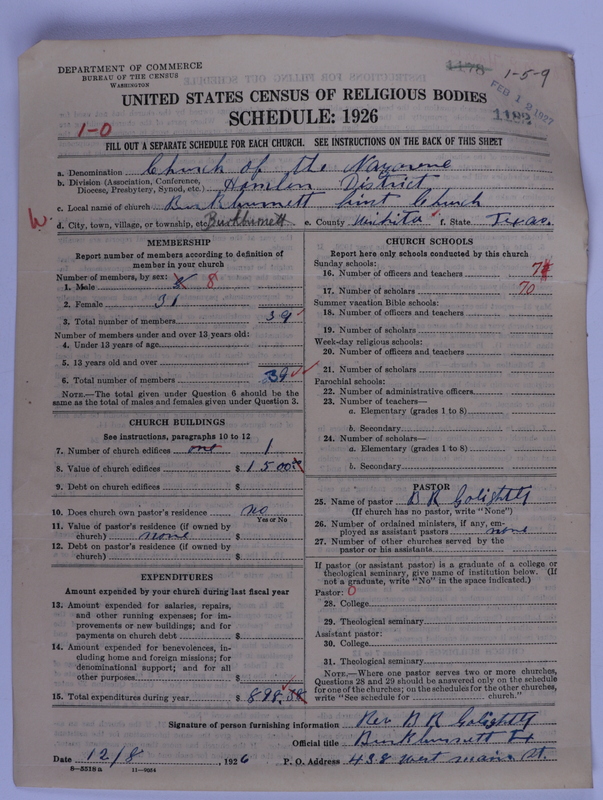 DEPARTMENT OF COMMERCE
BUREAU OF THE CENSUS
WASHINGTON
1178
1-5-9
FEB 12 1927
UNITED STATES CENSUS OF RELIGIOUS BODIES
SCHEDULE: 1926
1-0
FILL OUT A SEPARATE SCHEDULE FOR EACH CHURCH. SEE INSTRUCTIONS ON THE BACK OF THIS SHEET
a. Denomination Church of the Nazarene
b. Division (Association, Conference, Diocese, Presbytery, Synod, etc.) Hamlin District
c. Local name of church Burkburnett First Church
d. City, town, village, or township, etc. Burkburnett e. County Wichita f. State Texas.
MEMBERSHIP
Report number of members according to definition of
member in your church
Number of members, by sex:
1. Male 8 8
2. Female 31
3. Total number of members 39
Number of members under and over 13 years old:
4. Under 13 years of age
5. 13 years old and over
6. Total number of members 39
NOTE.—The total given under Question 6 should be the
same as the total of males and females given under Question 3.
CHURCH BUILDINGS
See instructions, paragraphs 10 to 12
7. Number of church edifices one 1
8. Value of church edifices $ 1500
9. Debt on church edifices $
10. Does church own pastor's residence no
Yes or No
11. Value of pastor's residence (if owned by
church) none $
12. Debt on pastor's residence (if owned by
church) $
EXPENDITURES
Amount expended by your church during last fiscal year
13. Amount expended for salaries, repairs,
and other running expenses; for im-
provements or new buildings; and for
payments on church debt $
14. Amount expended for benevolences, in-
cluding home and foreign missions; for
denominational support; and for all
other purposes $
15. Total expenditures during year $ 898.
CHURCH SCHOOLS
Report here only schools conducted by this church
Sunday schools:
16. Number of officers and teachers 7
17. Number of scholars 70
Summer vacation Bible schools:
18. Number of officers and teachers
19. Number of scholars
Week-day religious schools:
20. Number of officers and teachers
21. Number of scholars
Parochial schools:
22. Number of administrative officers
23. Number of teachers—
a. Elementary (grades 1 to 8)
b. Secondary
24. Number of scholars—
a. Elementary (grades 1 to 8)
b. Secondary
PASTOR
25. Name of pastor B R Golightly
(If church has no pastor, write "None")
26. Number of ordained ministers, if any, em-
ployed as assistant pastors none
27. Number of other churches served by the
pastor or his assistants
If pastor (or assistant pastor) is a graduate of a college or
theological seminary, give name of institution below. (If
not a graduate, write "No" in the space indicated.)
Pastor: 0
28. College
29. Theological seminary
Assistant pastor:
30. College
31. Theological seminary
NOTE.—Where one pastor serves two or more churches,
Questions 28 and 29 should be answered only on the schedule
for one of the churches; on the schedules for the other churches,
write "See schedule for church."
Signature of person furnishing information Rev B R Golightly
Official title Burkburnett Tx
Date 12/8, 1926 P. O. Address 438 West main St.
8-5518a 11-9054